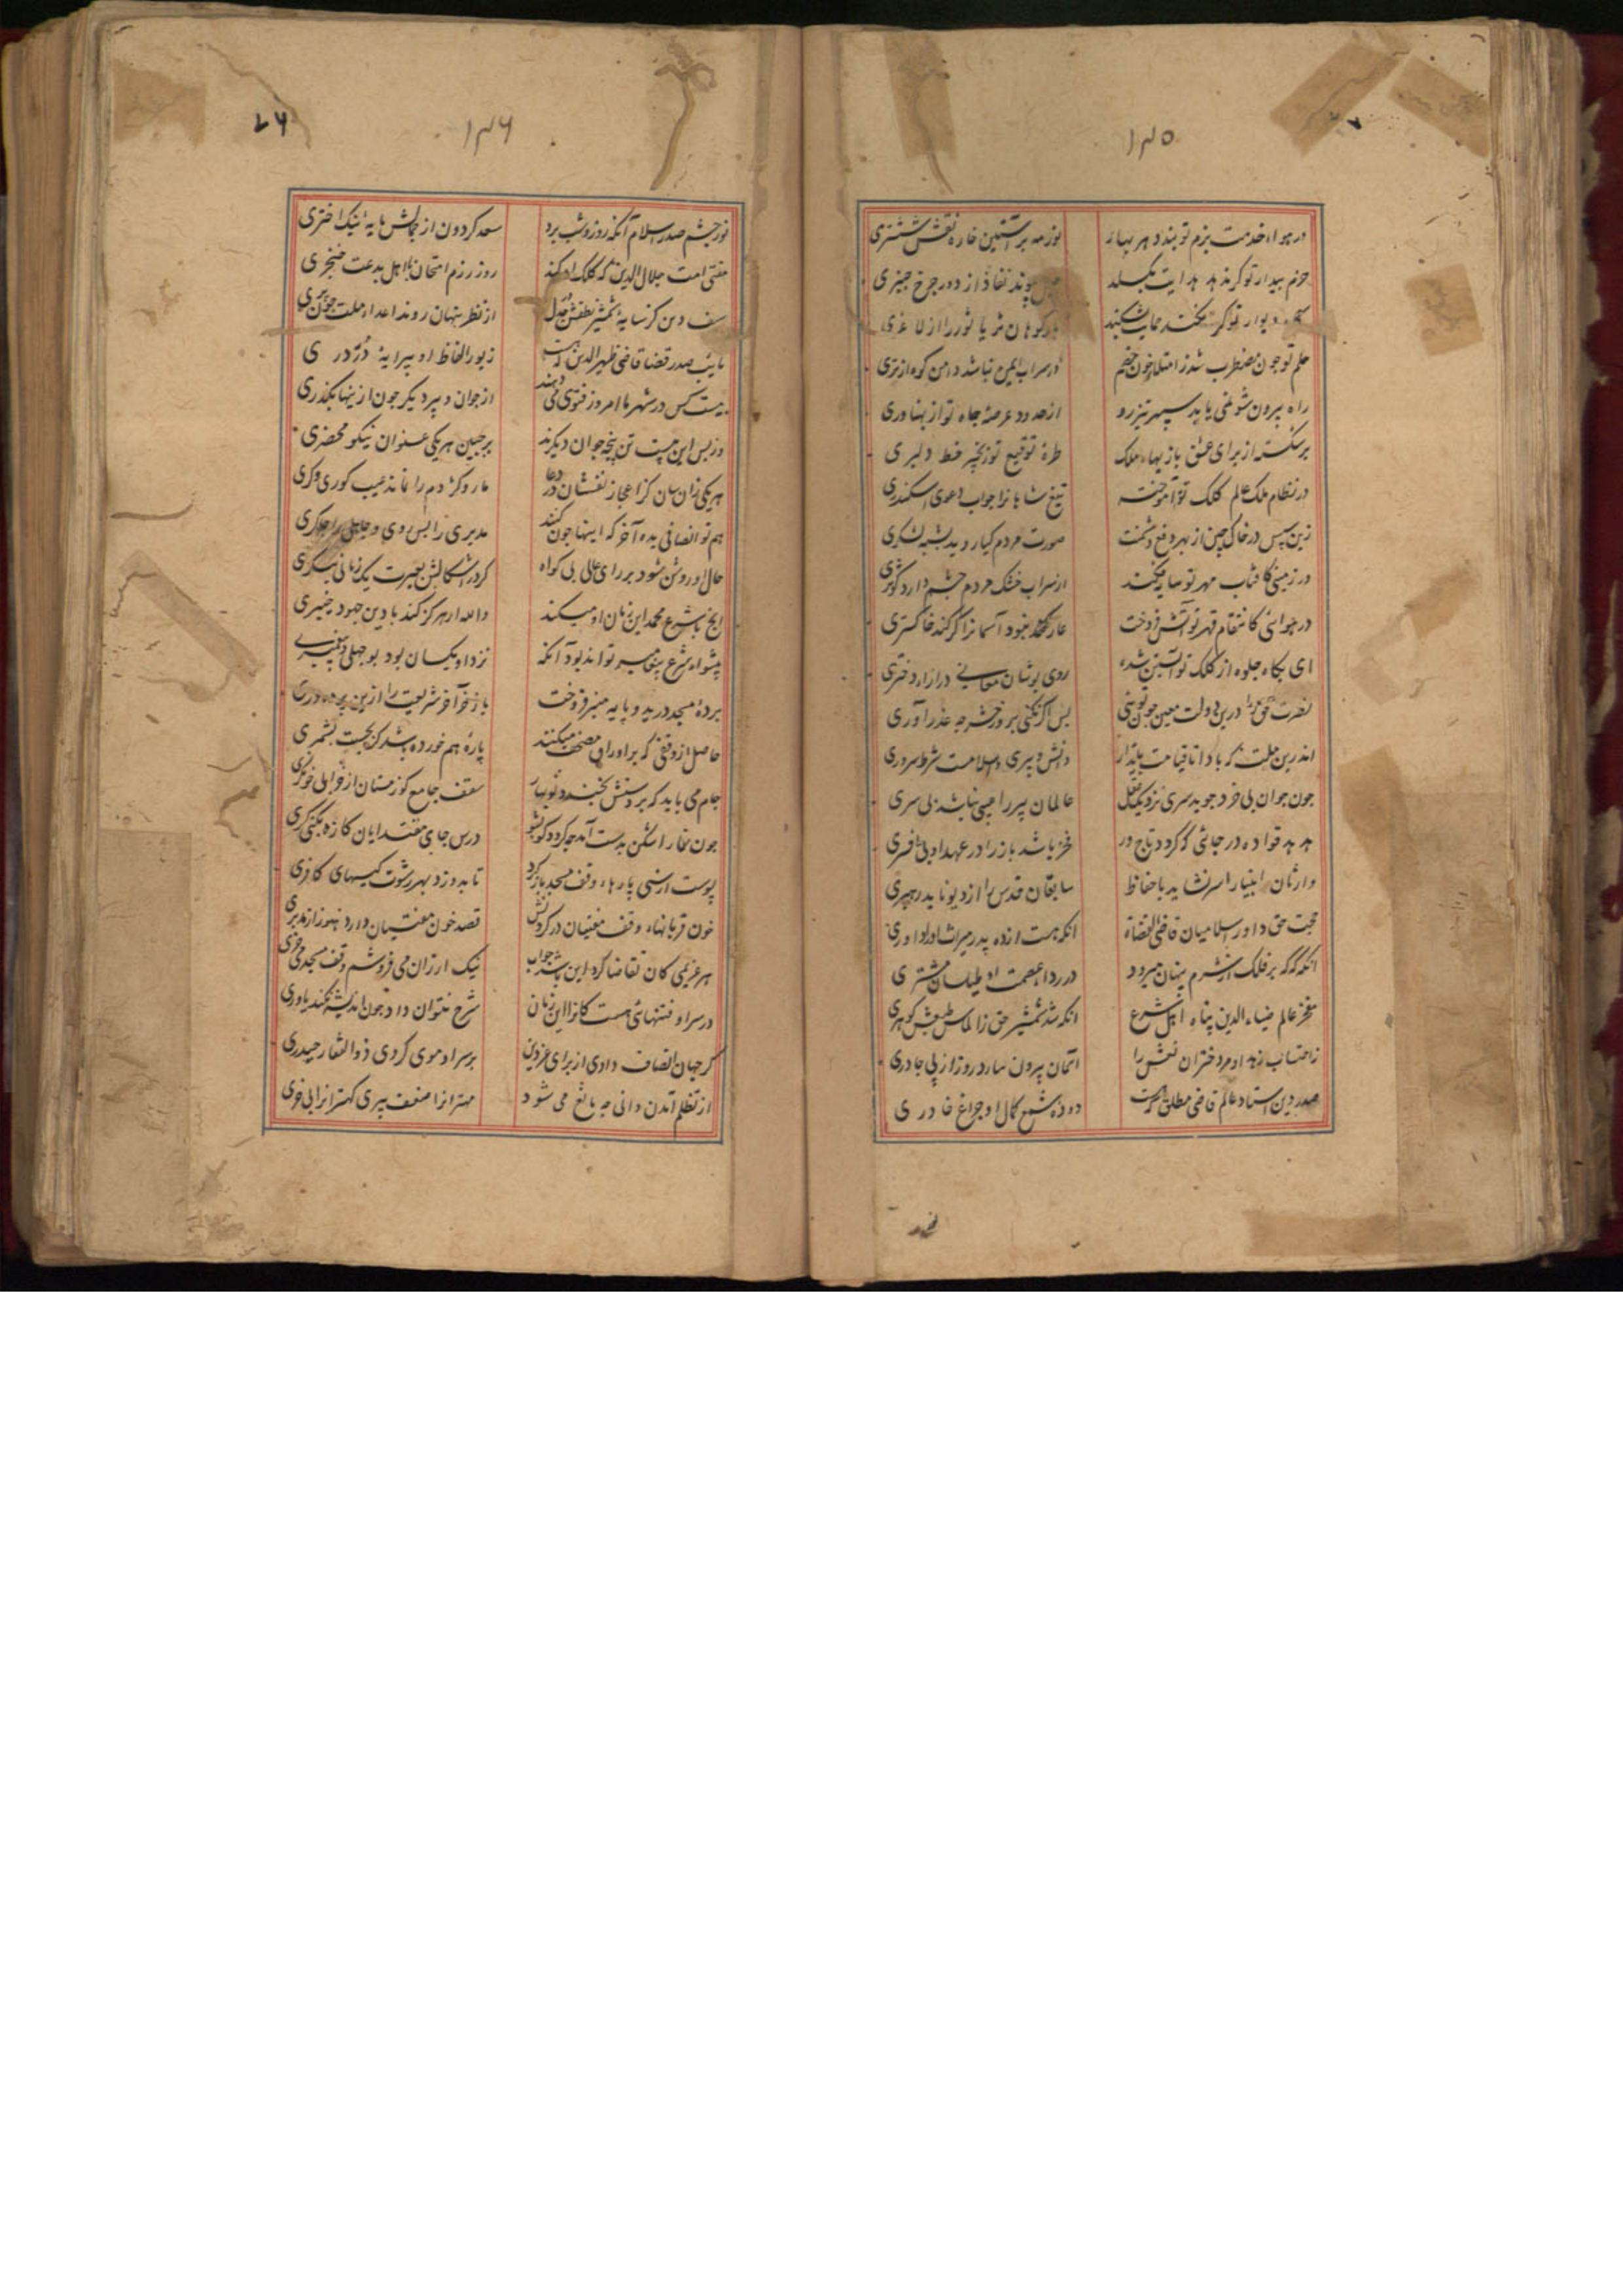 ١٣٥
در هواء خدمت بزم تو بندد هر بهار
نوز مه بر آستین خاره نقش ششتری
حزم بیدار تو کر بند هدایت بکسلد
بوند نفاذ از دور چرخ چنبری
کوهان ثریا ثور را از لاغری
حلم تو جون مضطرب شد ز امتلاء خون خصم
در سراب ایمن نباشد دامن کوه از تری
راه بیرون شو نمی یابد سپهر تیزرو
از حدود عرصهٔ جاه تو از پهناوری
برشکسته از برای عشق بازیهاء ملک
طرهٔ توقیع تو زنجیر خط دلبری
در نظام ملک عالم کلک تو آموخته
تیغ شاهانرا جواب دعوی اسکندری
زین سپس در خاک چین از بهر دفع دشمنت
صورت مردم کیا روید بشبه لشکری
در زمینی کافتاب مهر تو سایه فکند
از سراب خشک مردم چشم دارد کوثری
در هوائی کانتقام قهر تو آتش فروخت
عار نبود آسمانرا کر کند خاکستری
ای بکاه جلوه از کلک تو آبستن شده
روی پوشان معانی در ازاء دختری
نصرت حق را درین دولت معین جون تویی
بس اکر نکنی بروز حشر چه عذر آوری
اندرین ملت که بادا تا قیامت پایدار
دانش و پیری و اسلامست شرط سروری
جون جوان بی خرد جوید سری نزدیک عقل
عالمان پیر را عیبی نباشد بی سری
هدهد قواده در جائی که کردد تاج ور
فخر باشد باز را در عهد او بی افسری
وارثان انبیا را سر نشاید با حفاظ
سابقان قدس را از دیو ناید رهبری
حجت حق داور اسلامیان قاضی القضاة
انکه هست از ده پدر میراث او را داوری
انکه که که بر فلک از شرم پنهان میرود
در رداء عصمت او طیلسان مشتری
مفخر عالم ضیاءالدین پناه اهل شرع
انکه شد شمشیر حق را الماس طبعش کوهری
ز احتساب زهد او مر دختران نعش را
آسمان بیرون نیارد روز از بی جادری
صدر دین استاد عالم قاضی مطلق که هست
دودهٔ شمع کمال او چراغ خاوری
١٣٦
٧٦
نور چشم صدر اسلام آنکه روز و شب برد
سعد کردون از جمالش مایهٔ نیک اختری
مفتی امت جلال الدین که کلک او کند
روز رزم امتحان با اهل بدعت خنجری
سیف دین کز سایهٔ شمشیر نطقش در جدل
از نظر پنهان روند اعداء ملت جون پری
نایب صدر قضا قاضی ظهیر الدین که هست
زیور الفاظ او پیرایهٔ دُرّ دری
بیست کس در شهر ما امروز فتوی می دهند
از جوان و پیر دیکر جون ازینها بکذری
وز پس این بیست تن پنجه جوان دیکرند
بر جبین هر یکی عنوان نیکو محضری
هر یکی زان سان کز اعجاز نفسشان در دعا
مار و کژدم را نماند عیب کوری و کری
هم تو انصافی بده آخر که اینها جون کنند
مدبری را پس روی و جاهلی را جاکری
حال او روشن شود بر رای عالی بی کواه
کر در اشکالش بعبرت یک زمانی بنکری
آنج با شرع محمد این زمان او میکند
والله ار هرکز کند با دین جهود خیبری
پیشواء شرع پیغامبر تواند بود آنکه
نزد او یکسان بود بوجهلی و پیغمبری
بردهٔ مسجد درید و پایهٔ منبر فروخت
باز خر آخر شریعت را ازین پرده دری
حاصل از وقفی که بر اوراق مصحف میکنند
پارهٔ هم خورده باشد کر بجست بشمری
جام می باید که بر دستش بخندد نوبهار
سقف جامع کو زمستان از خرابی خون کری
جون قمار اشکن بدست آمد چه کردد کو بشو
درس جای مقتدایان کازهٔ بکنی کری
پوست از سی پارهاء وقف مسجد باز کرد
تا بدوزد بهر رشوت کیسهای کافری
خون قربانهاء وقف مفتیان در کردنش
قصد خون مفتیان دارد هنوز از مدبری
هر غریمی کان تقاضا کرد این باشد جواب
نیک ارزان می فروشم وقف مسجد می خری
در سر او فتنهائی هست کانرا این زمان
شرح نتوان داد جون اندیشه نکند یاوری
کر جهان انصاف دادی از برای عز دین
بر سر او موی کردی ذوالفقار حیدری
از تظلم آمدن دانی چه مانع می شود
مهترانرا ضعف پیری کهترانرا بی خری